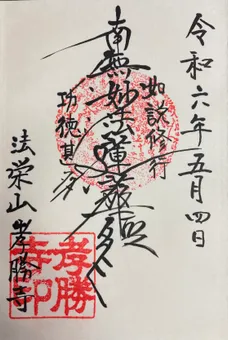 令和六年五月四日
如説修行
南無妙法蓮華経
功徳甚多
法栄山孝勝寺
孝勝
寺印